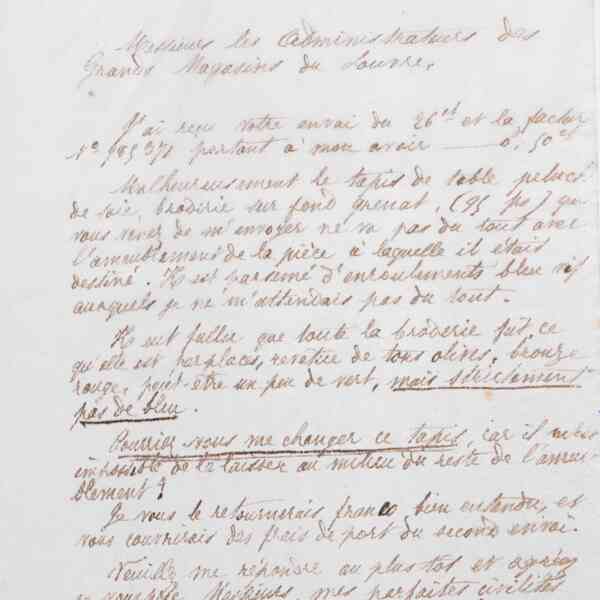 Messieurs les Administrateurs des
Grands Magasins du Louvre,
J'ai reçu votre envoi du 26 ct et la factur
portant à mon avoir 0f. 50ct
Malheureusement le tapis de table peluc
de soie, broderie sur fond grenat, (95 ps) qu
vous venez de m'envoyer ne va pas du tout avec
l'ameublement de la pièce à laquelle il était
destiné. Il est parsemé d'enroulements bleu vif
auxquels je ne m'attendais pas du tout.
Il eut fallu que toute la broderie fût, ce
qu'elle est par places, revêtue de tons olives, bronze
rouge, peut-être un peu de vert, mais strictement
pas de bleu.
Pourriez vous me changer ce tapis, car il
impossible de le laisser au milieu du reste de l'ameu-
blement?
Je vous le retournerais franco bien entendu, et
vous couvrirais des frais de port du second envoi.
Veuillez me répondre au plus tôt et agréez
Messieurs, mes parfaites civilités